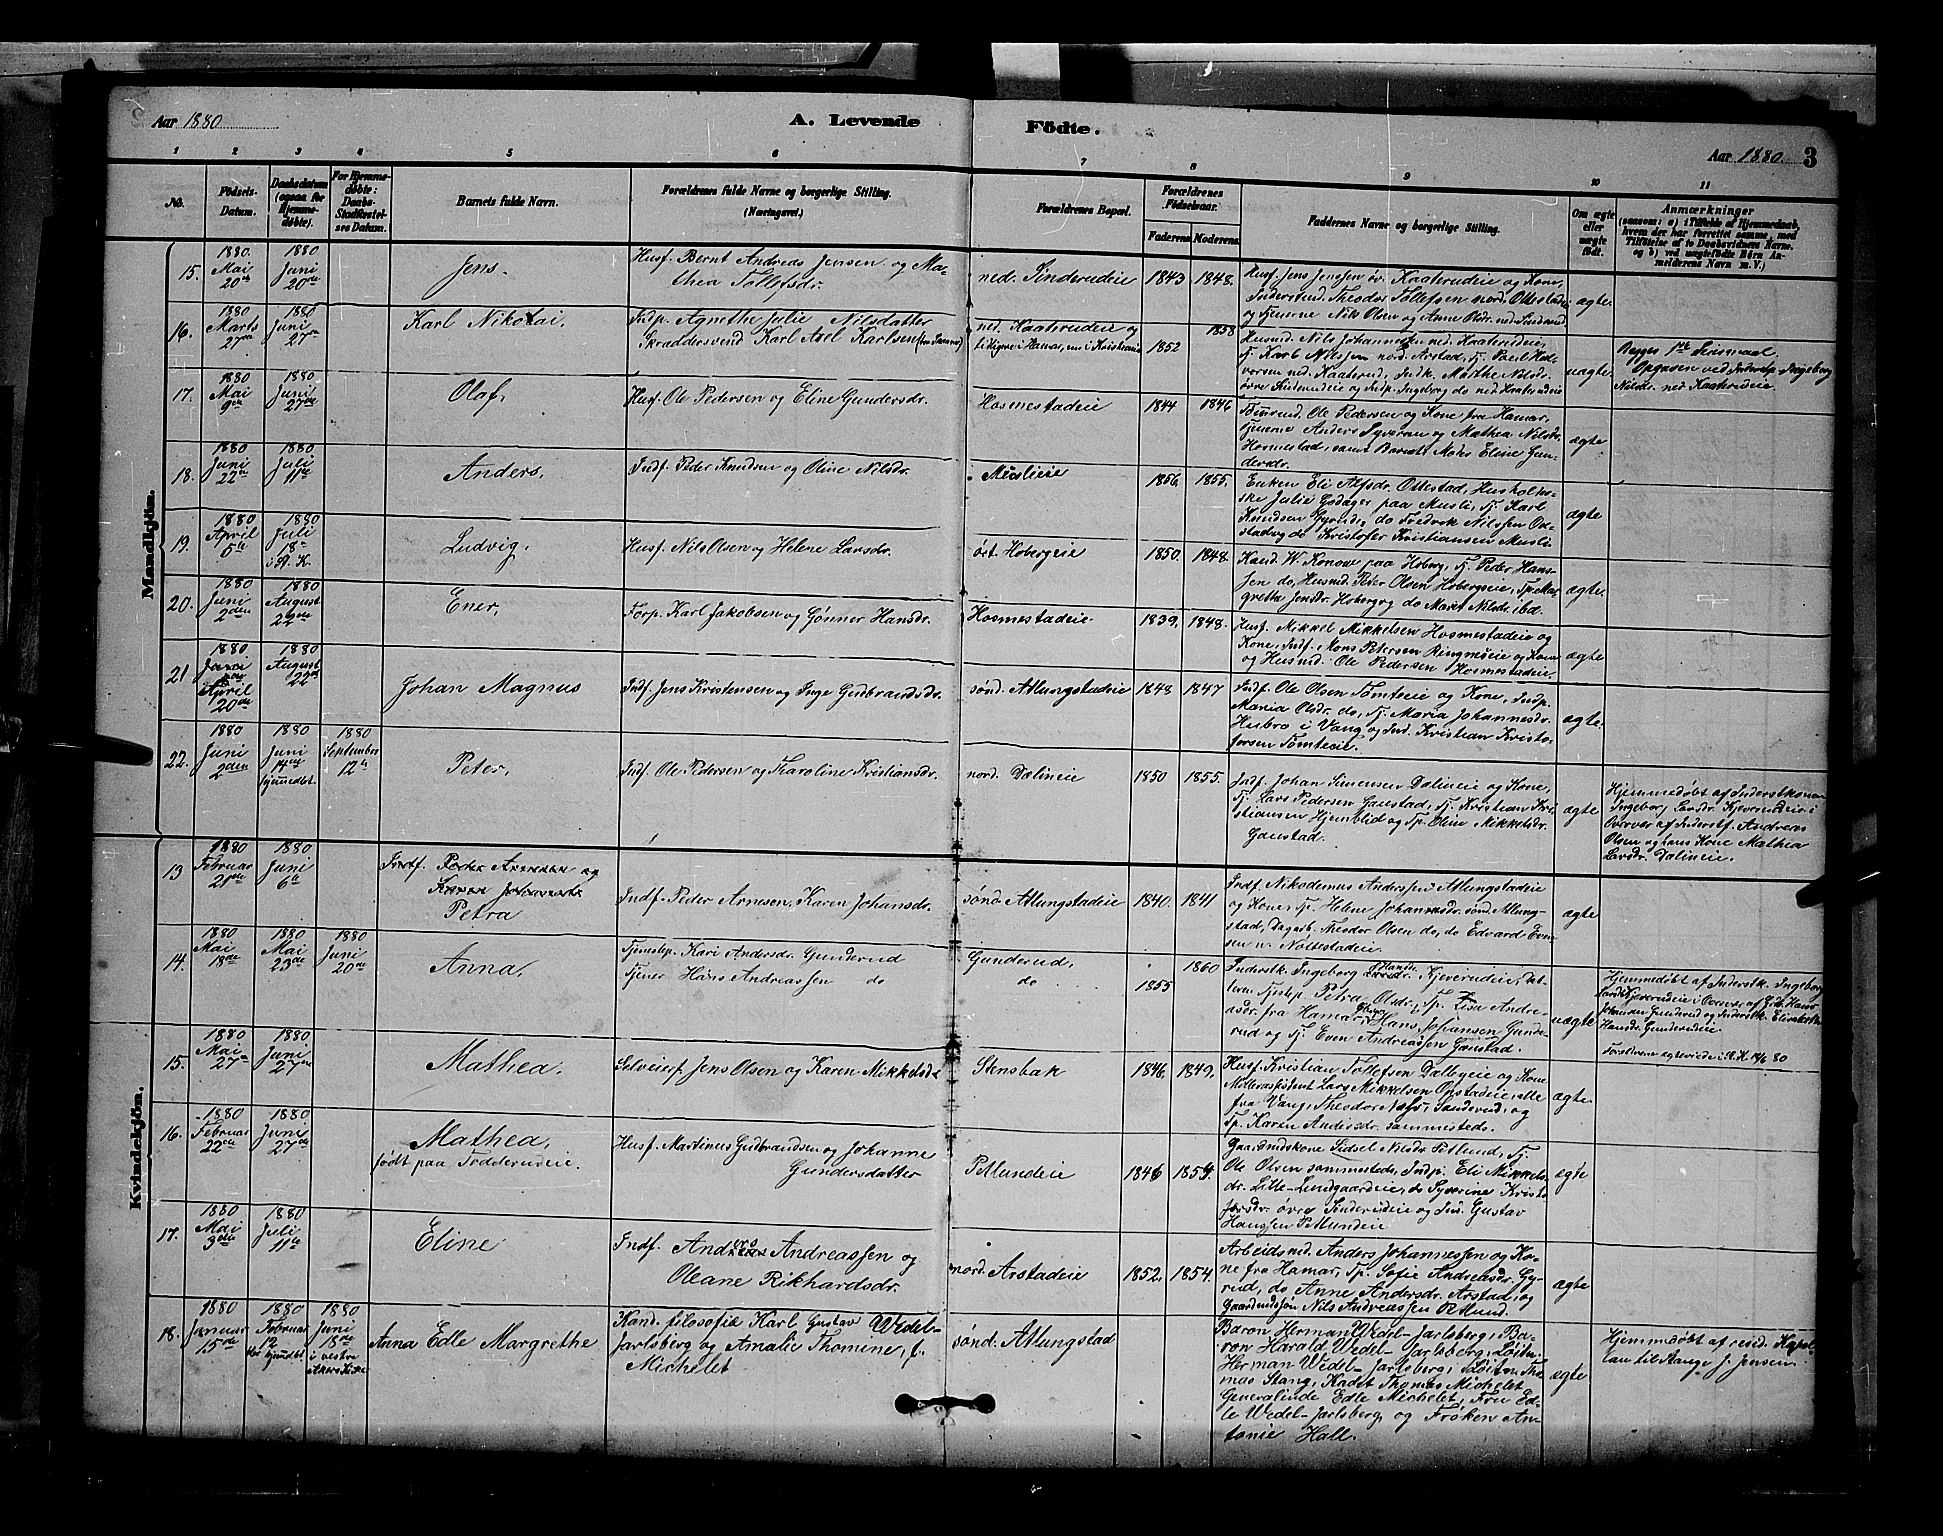 Aar 1880
A. Levende Födte.
Aar 1880. 3
1 2 3 4 5 6 7 8 9 10 11
No.
Födsels-
Datum.
Daabsdatum
(ogsaa for
Hjemme-
døbte).
For Hjemme-
døbte:
Daabs-
Stadfæstel-
ses Datum.
Barnets fulde Navn.
Forældrenes fulde Navne og borgerlige Stilling.
(Næringsvei.)
Forældrenes Bopæl.
Forældrenes
Födselsaar.
Faderens Moderens.
Faddernes Navne og borgerlige Stilling.
Om ægte
eller
uægte
födt.
Anmærkninger
(saasom: a) i Tilfælde af Hjemmedaab,
hvem der har forrettet samme, med
Tilföielse af to Daabsvidners Navne.
og b) ved uægtefödte Börn An-
melderens Navn m. V.)
Mandkjön.
15.
1880
Mai
20de
1880
Juni
20de
Jens.
Husf. Bernt Andreas Jensen og Ma-
thea Tollefsdr.
ned. Sinderudeie
1843 1848.
Husf. Jens Jensen öv. Kaaterudeie og Kone,
Inderstsnd. Theodor Tollefsen nord. Ottestad,
og Tjenerne Nils Olsen og Anne Olsdr. ned. Sinderud
ægte.
16.
1880
Marts
27de
1880
Juni
27de
Karl Nikolai.
Indp. Agnethe Julie Nilsdatter
Skræddersvend Karl Axel Karlsen
ned. Kaaterudeie og
tidligere i Hamar, nu i Kristiania
1852 1858
Husmd. Nils Johannesen ned. Kaaterudeie,
Tj. Karl Nilssen nord. Arstad, Tj. Paul Hal-
vorsen ned. Kaaterud, Indk. Marthe Nilsdr.
övre Sinderudeie og Indp. Ingeborg do ned Kaaterudeie
uægte.
Begges 1ste Leiermaal.
Opgaven ved Inderstp. Ingeborg
Nilsdr. ned Kaaterudeie.
17.
1880
Mai
9de
1880
Juni
27de
Olaf,
Husf. Ole Pedersen og Eline Gundersdr.
Hosmestadeie
1844 1846
Ole Pedersen og Kone fra Hamar,
Tjenerne Anders Syversen og Mathea Nilsdr.
Hosmestad, samt Barnets Moder Eline Gun-
dersdr.
ægte
18.
1880
Juni
22de
1880
Juli
11te
Anders.
Indf. Peder Knudsen og Oline Nilsdr.
Muslieie
1856. 1855.
Enken Eli Alfsdr. Ottestad, Husholder-
ske Julie Godager paa Musli, Tj. Karl
Knudsen Gyrud, do Fredrik Nilssen
do Kristofer Kristiansen Musli.
ægte
19.
1880
April
5te
1880
Juli
18de
i St. K.
Ludvig.
Husf. Nils Olsen og Helene Larsdr.
öst. Hobergeie
1850. 1848.
Kand. W. Konow paa Hoberg, Tj. Peder Hans-
sen do, Husmd. Peter Olsen Hobergeie, Tp. Mar-
grethe Jensdr. Hoberg og do Maret Nilsdr. ibd.
ægte.
20.
1880
Juni
2den
1880
August
22de
Ener.
Forp. Karl Jakobsen og Gönner Hansdr.
Hosmestadeie
1839. 1848.
Husf. Mikkel Mikkelsen Hosmestadeie og
Kone, Indf. Mons Petersen Ringnæseie og Kone
og Husmd. Ole Pedersen Hosmestadeie.
ægte
21
1880
April
20de
1880
August
22de
Johan Magnus
Indf. Jens Kristensen og Inge Gudbrandsdr.
sönd. Atlungstadeie
1848 1847
Indf. Ole Olsen Tomteeie og Kone, Indp.
Maria Olsdr. do, Tj. Maria Johannesdr.
Husbro i Vang og Ind. Kristian Kristo-
fersen Tomteeie.
ægte.
22.
1880
Juni
2den
1880
Juni
hjemmedøbt.
1880
September
12te
Peter.
Indf. Ole Pedersen og Karoline Kristiansdr.
nord. Dælineie
1850 1855.
Indf. Johan Simensen Dalineie og Kone,
Tj. Lars Pedersen Gaustad, Tj. Kristian Kri-
stiansen Hjemblid og Tp. Oline Mikkelsdr.
Gaustad.
ægte
Hjemmedøbt af Inderstkonen
Ingeborg Larsdr. Kjeverudeie i
Overvær af Inderstf. Andreas
Olsen og hans Kone Mathea
Larsdr. Dalineie.
Kvindekjön.
13
1880
Februar
21de
1880
Juni
6te
Indf. Peder Arnesen og
Karen Johansdr
Petra
Indf. Peder Arnesen, Karen Johansdr.
sönd Atlungstadeie
1840. 1841
Indf. Nikodemus Anderssen Atlungstadeie
og Kone, Tp. Helene Johannesdr. sönd. Atlung-
stad, Dagarb. Theodor Olsen do, do Edvard Even-
sen Nöttestadeie.
ægte
14.
1880
Mai
18de
1880
Mai
23de
1880
Juni
20de
Anna.
Tjenstep. Kari Andersdr. Gunderud
Tjener Hans Andreassen do
Gunderud.
do.
1855 1860
Inderstk. Ingeborg Hansdr. Kjeverudeie,
Tjenstep. Petra Olsdr., Tp. Lisa Andre-
asdr. fra Hamar, Hans Johansen Gunde-
rud og Tj. Even Andreassen Gaustad.
uægte
Hjemmedøbt af Inderstk. Ingeborg
Larsdr. Kjeverudeie i Overv. af Hans
Johansen Gunderud og Inderstk. Elisabeth
Hansdr. Gunderudeie
Forældrene ægteviede i St. K. 14/6 80
15.
1880
Mai
27de
1880
Juni
27de
Mathea.
Selveierf. Jens Olsen og Karen Mikkelsdr
Stensbak
1846. 1849.
Husf. Kristian Tollefsen Dalbyeie og Kone
Lars Mikkelsen Opstadeie, alle
fra Vang, Theodor Sanderud, og
Tp. Karen Andersdr. sammesteds.
ægte.
16.
1880
Februar
22de
1880
Juni
27de
Mathea,
født paa Fodderudeie.
Husf. Martinus Gudbrandsen og Johanne
Gundersdatter
Petlundeie
1846 1854.
Gaardmdskone Sidsel Nilsdr Petlund, Tj.
Ole Olsen sammesteds, Indp. Eli Mikkels-
dr. Lille-Lundgaardeie, do Syverine Kristo-
fersdr. övre Sinderudeie og Ind. Gustav
Hanssen Petlundeie
ægte
17.
1880
Mai
3die
1880
Juli
11te
Eline
Indf. Anders Andreassen og
Oleane Rikhardsdr.
nord. Arstadeie
1852. 1854.
Arbeidsmd. Anders Johannessen og Ko-
ne fra Hamar, Tp. Sofie Andreasdr. Gy-
rud, do Anne Andersdr. Arstad, og
Gaardmdssön Nils Andreassen Petlund.
ægte
18.
1880
Januar
15de
1880
Februar
12
blev hjemdøbt.
1880
Juni
18de
i vestre
Akers Kirke
Anna Edle Margrethe
Kand. filosofiæ Karl Gustav Wedel-
Jarlsberg og Amalie Thomine, f.
Michelet
sönd. Atlungstad
Baron Herman Wedel-Jarlsberg, Ba-
ron Harald Wedel-Jarlsberg, Löitn.
Herman Wedel-Jarlsberg, Löitn. Tho-
mas Stang, Kadet Thomas Michelet
Generalinde Edle Michelet, Fru Ed-
le Wedel-Jarlsberg, og Fröken An-
tonie Hall.
ægte
Hjemmedøbt af resid. Kapel-
lan til Stange J. Jensen.